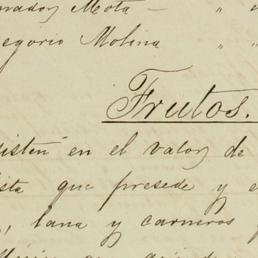 nador Mota — "
egorio Molina " "
Frutos.
isten en el valor de
ista que presede y e
, lana y carneros